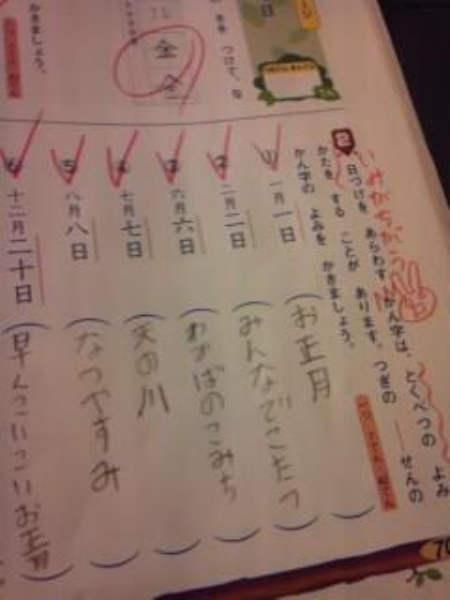 金
会
かきましょう。
をを つけて、
日
2
いみがちがう
日づけを あらわす かん字は、とくべつの よみ
かたを する ことが あります。つぎの ——せんの
かん字の よみを かきましょう。
① 一月一日 (お正月)
② 二月二日 (みんなでこたつ)
③ 六月六日 (わかばのこみち)
④ 七月七日 (天の川)
⑤ 八月八日 (なつやすみ)
⑥ 十二月二十日 (早くこいこいお正月)
70